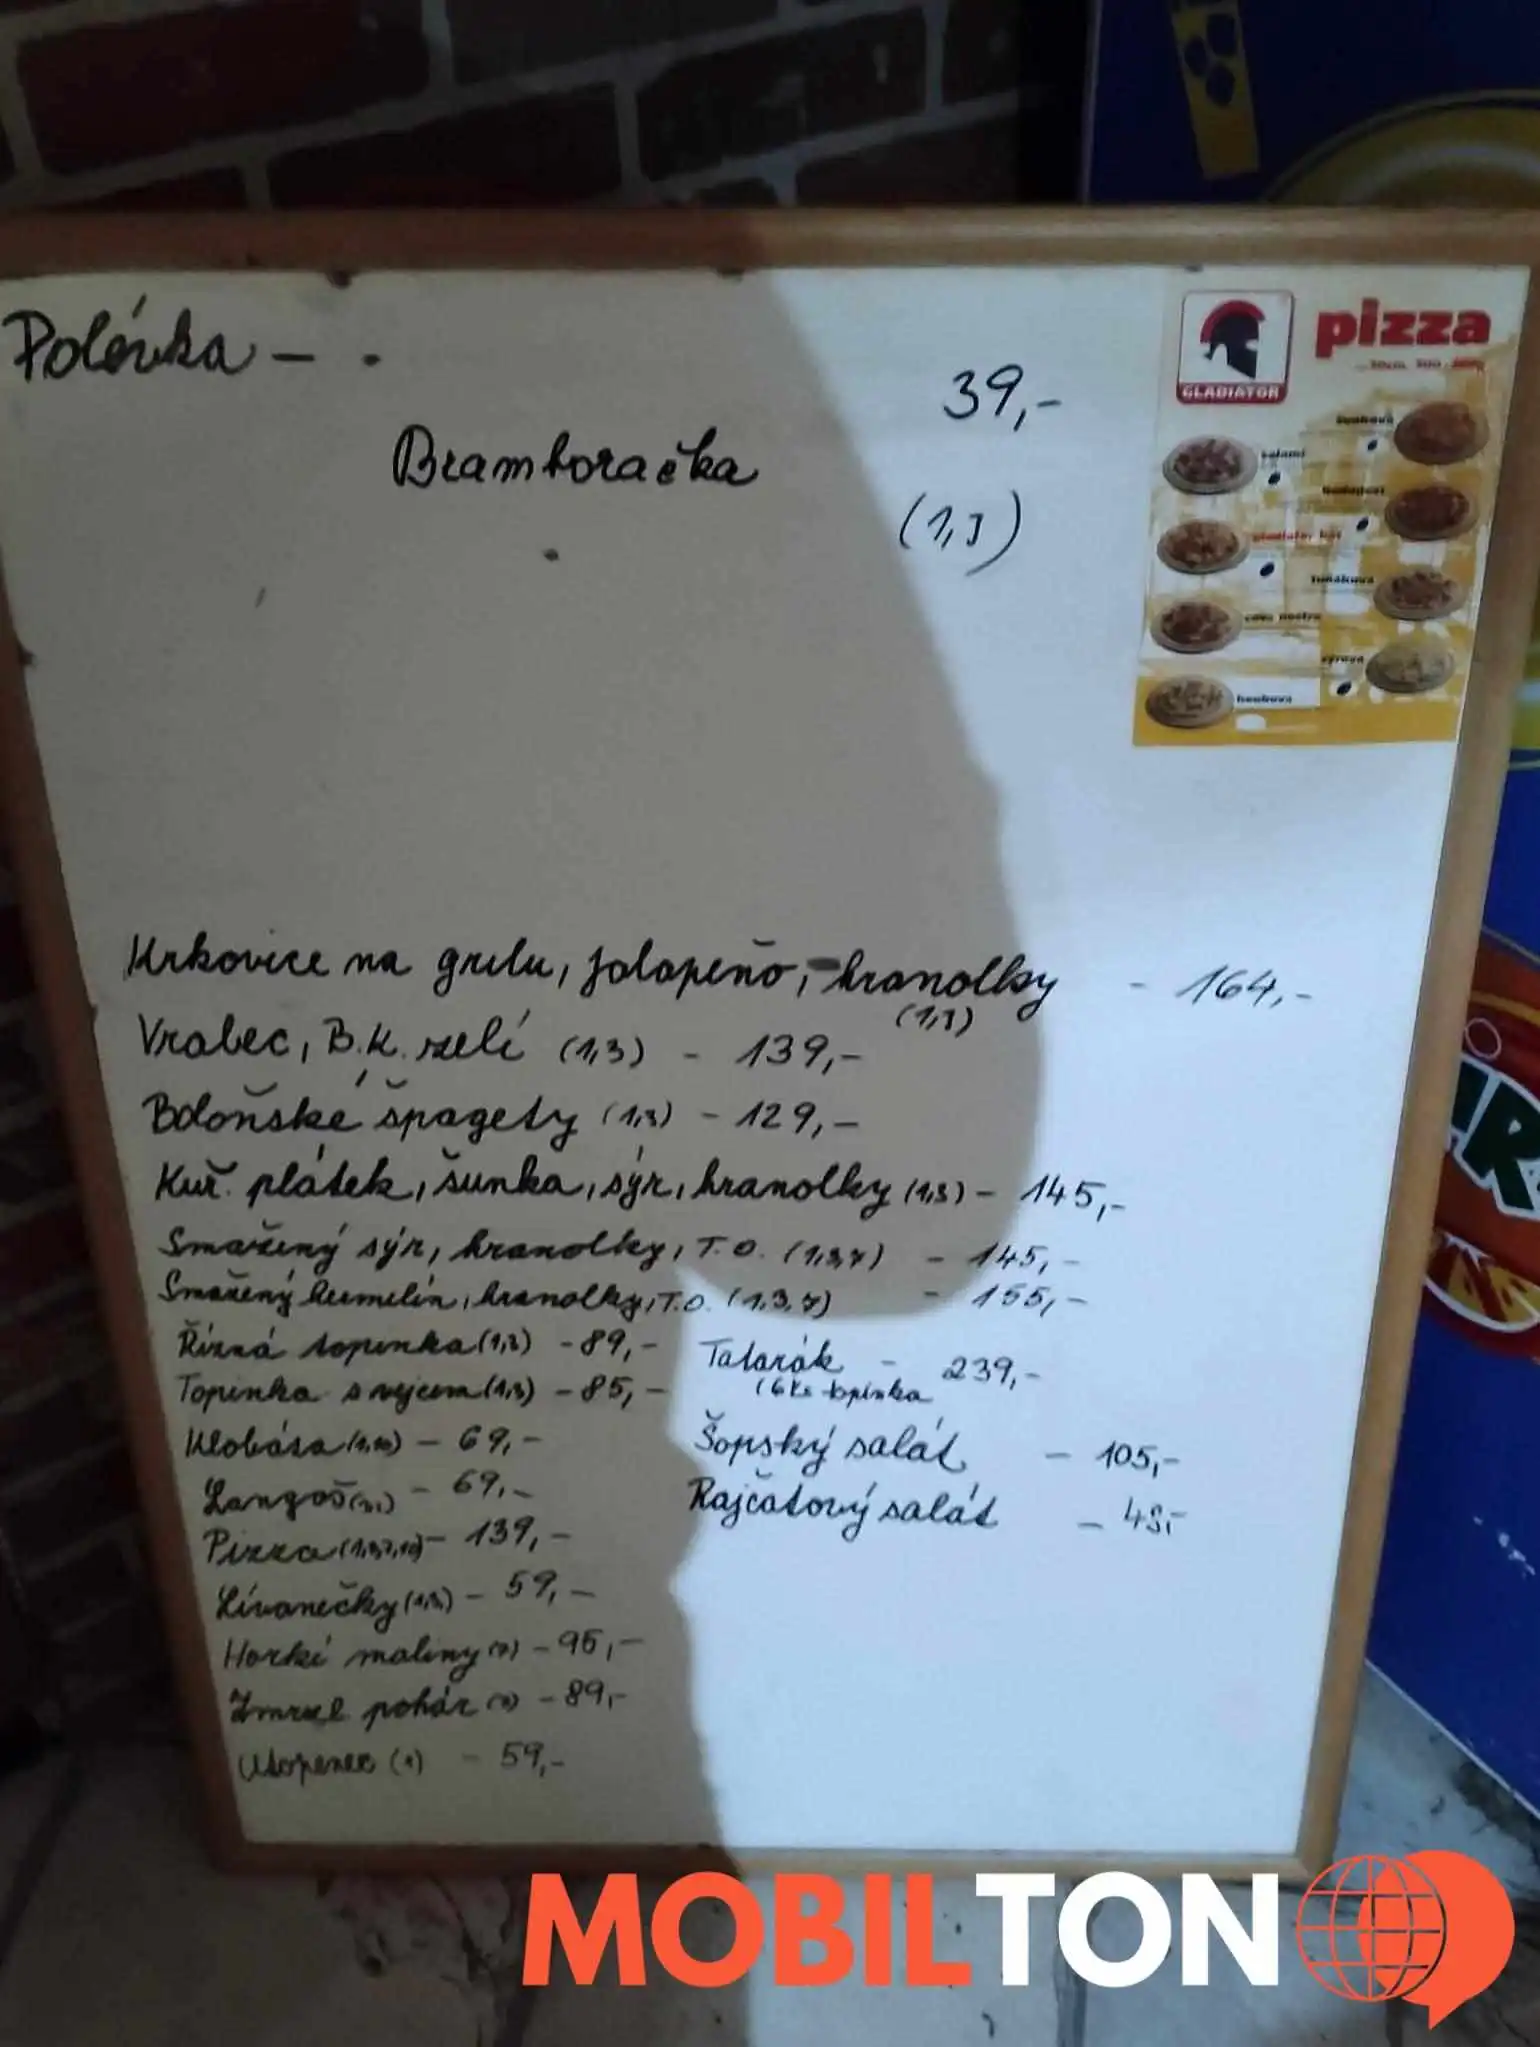 Polévka –
39,-
Bramboračka
(1,3)
GLADIATOR
pizza
šunková
salami
tuňáková
sýrová
Krkovice na grilu, jalapeño, hranolky - 164,-
(1,3)
Vrabec, B.K. zelí (1,3) - 139,-
Boloňské špagety (1,3) - 129,-
Kuř. plátek, šunka, sýr, hranolky (1,3) - 145,-
Smažený sýr, hranolky, T.O. (1,3,7) - 145,-
Smažený hermelín, hranolky, T.O. (1,3,7) - 155,-
Řízná topinka (1,3) - 89,-
Topinka s vejcem (1,3) - 85,-
Klobása (1,10) - 69,-
Langoš - 69,-
Pizza (1,3,7,10) - 139,-
Lívanečky (1,3) - 59,-
Horké maliny (7) - 95,-
Zmrzl. pohár (7) - 89,-
Utopenec (1) - 59,-
Tatarák - 239,-
(6 ks topinka
Šopský salát - 105,-
Rajčatový salát -
MOBILTON